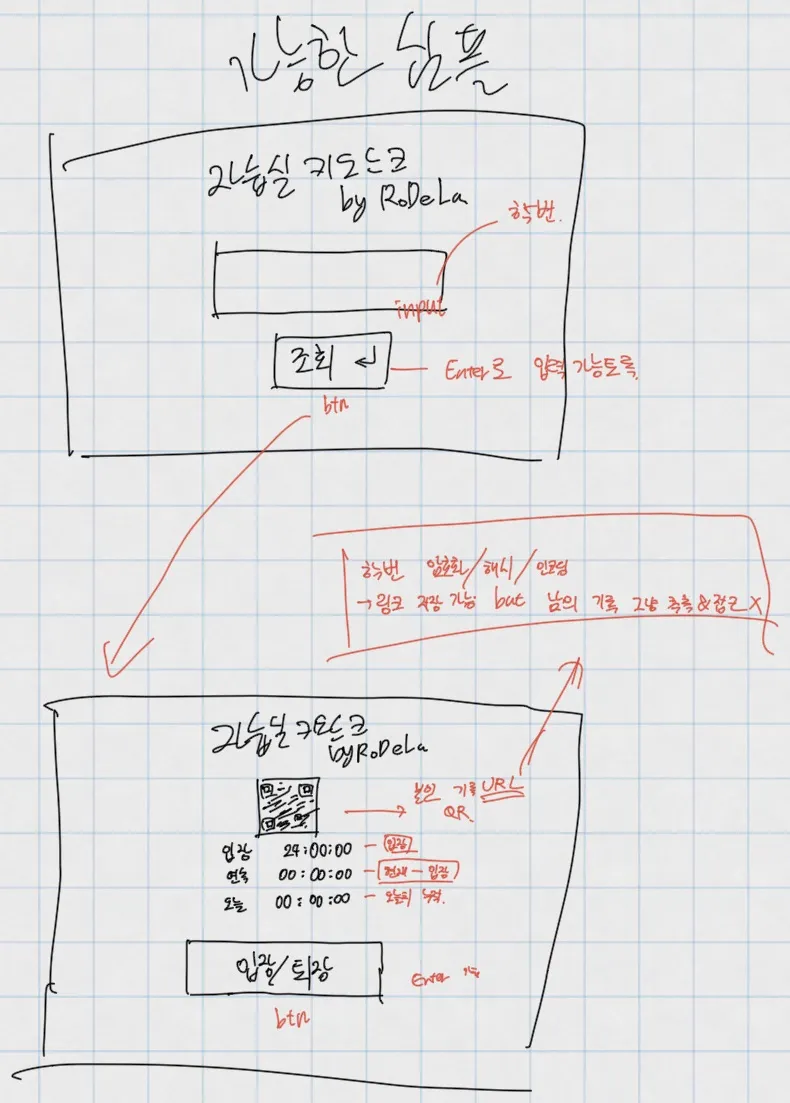 가능한 심플
자습실 키오스크
by RoDeLa
학번.
input
조회 ↵
Enter로 입력 가능토록.
btn
학번 암호화/해시/인코딩
→ 링크 저장 가능 but 남의 기록 그냥 추측&접근 X
자습실 키오스크
by RoDeLa
본인 기록 URL
QR.
입장 24:00:00 - 입장
연속 00:00:00 - 현재 - 입장
오늘 00:00:00 - 오늘의 누적.
입장/퇴장
Enter 가능
btn